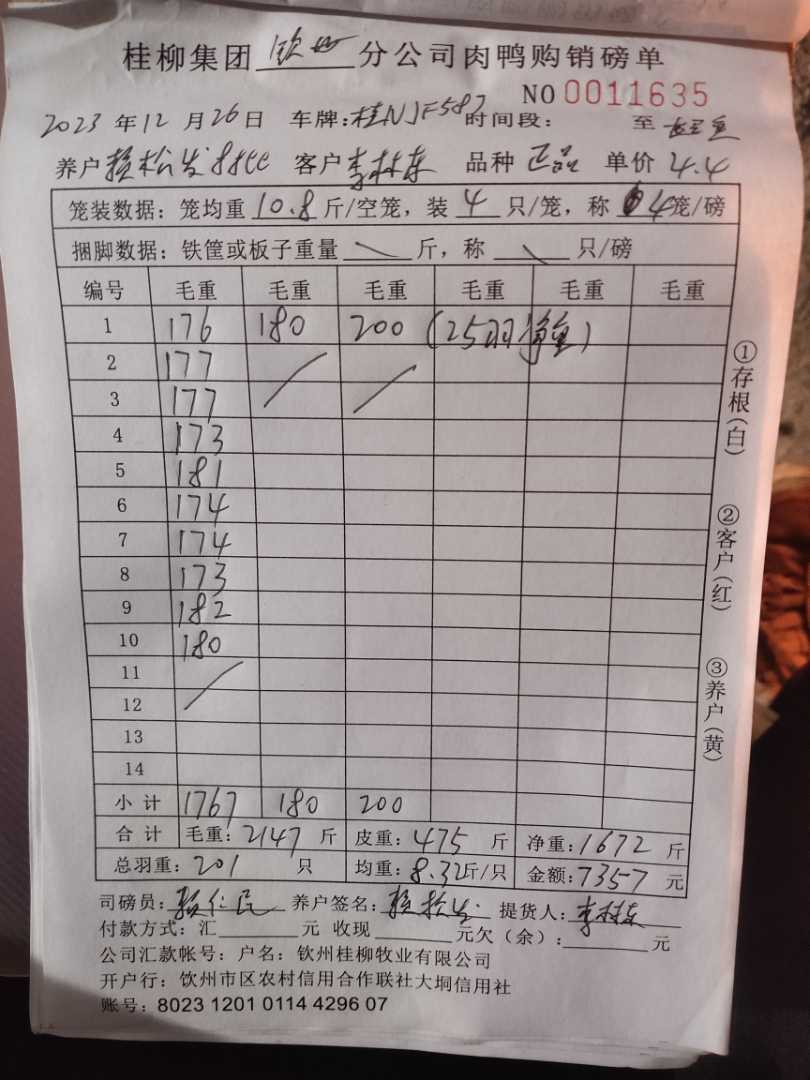 桂柳集团 钦州 分公司肉鸭购销磅单
NO 0011635
2023 年 12 月 26 日 车牌:桂NJF587 时间段: 至
养户 赖松发 客户 李林东 品种 正品 单价 4.4
笼装数据: 笼均重 10.8 斤/空笼, 装 4 只/笼, 称 4 笼/磅
捆脚数据: 铁筐或板子重量 \ 斤, 称 \ 只/磅
编号 毛重 毛重 毛重 毛重 毛重 毛重
1 176 180 200 (25羽净重)
2 177
3 177
4 173
5 181
6 174
7 174
8 173
9 182
10 180
11
12
13
14
小计 1767 180 200
合计 毛重: 2147 斤 皮重: 475 斤 净重: 1672 斤
总羽重: 201 只 均重: 8.32 斤/只 金额: 7357 元
司磅员: 赖仁民 养户签名: 赖松发 提货人: 李林东
付款方式: 汇 元 收现 元欠(余): 元
公司汇款帐号: 户名: 钦州桂柳牧业有限公司
开户行: 钦州市区农村信用合作联社大垌信用社
账号: 8023 1201 0114 4296 07
①存根(白)
②客户(红)
③养户(黄)